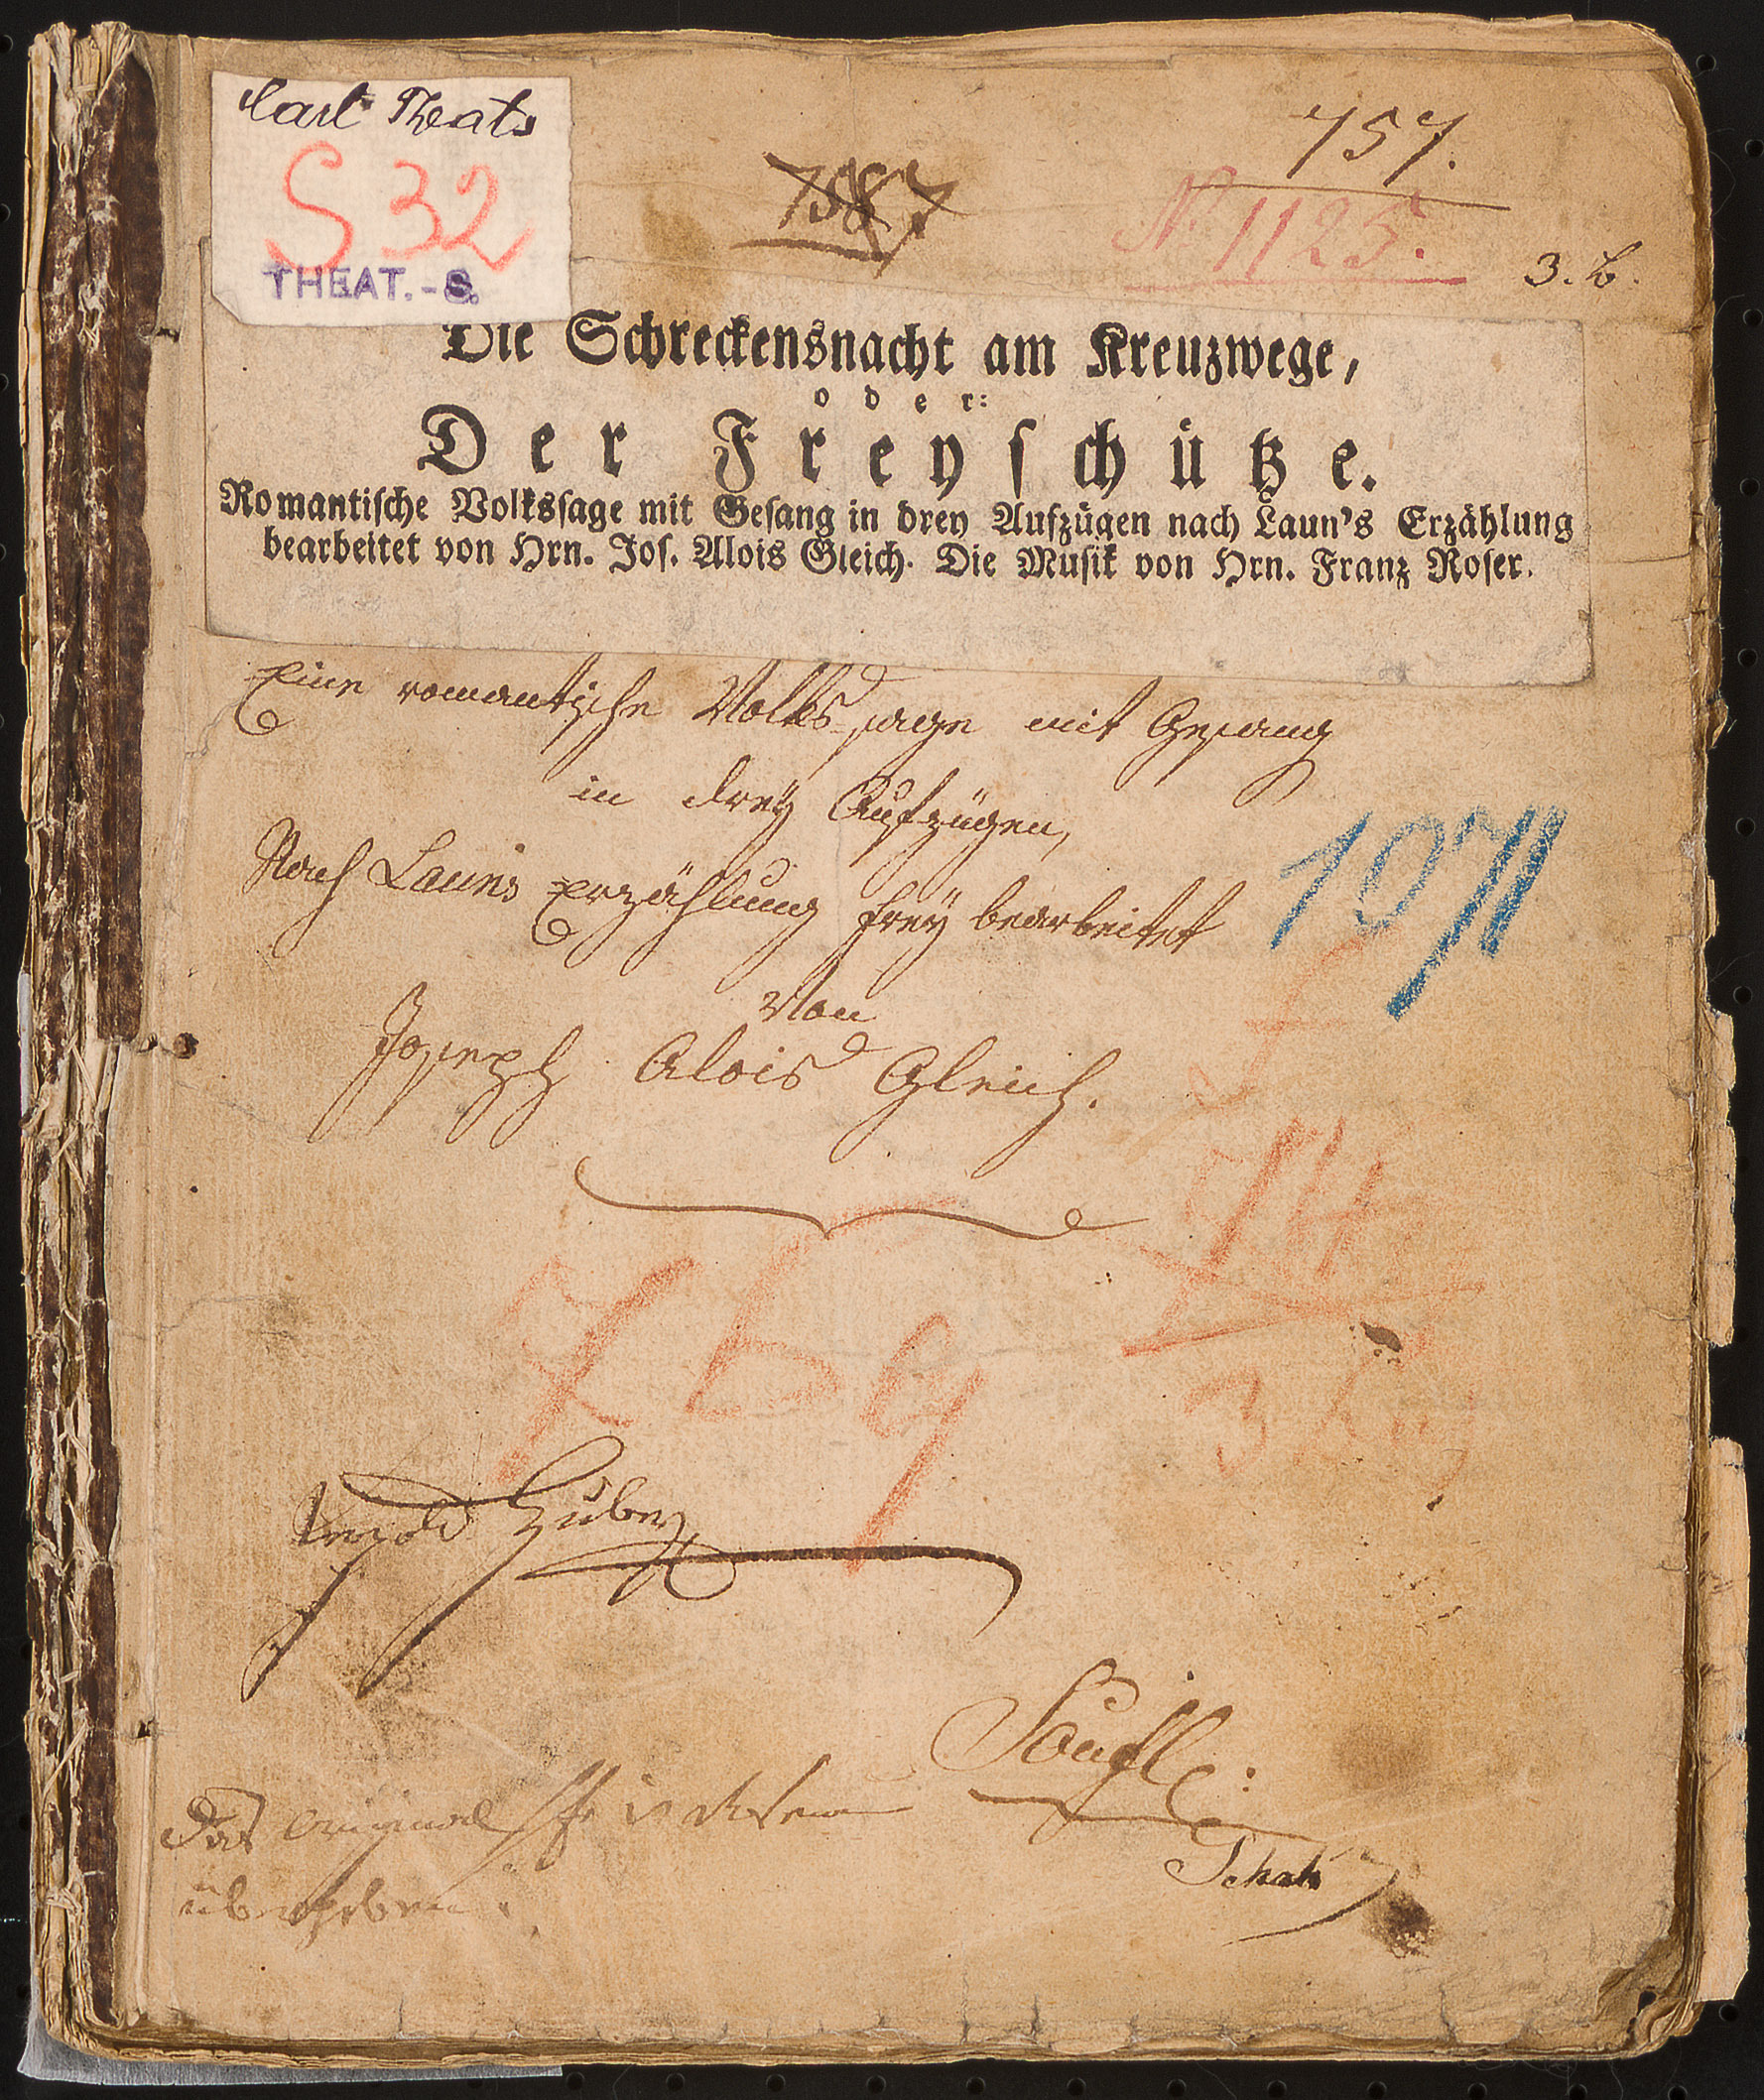 Carl Theat
S 32
THEAT.-S.
757.
N. 1125.
3. b.
Die Schreckensnacht am Kreuzwege,
oder:
Der Freyschütze.
Romantische Volkssage mit Gesang in drey Aufzügen nach Laun's Erzählung
bearbeitet von Hrn. Jos. Alois Gleich. Die Musik von Hrn. Franz Roser.
Eine romantische Volks-sage mit Gesang
in drey Aufzügen,
Nach Launs Erzählung frey bearbeitet
1071
Von
Joseph Alois Gleich.
14
769
3
Huber
Soufl:
Das Original
übergeben.